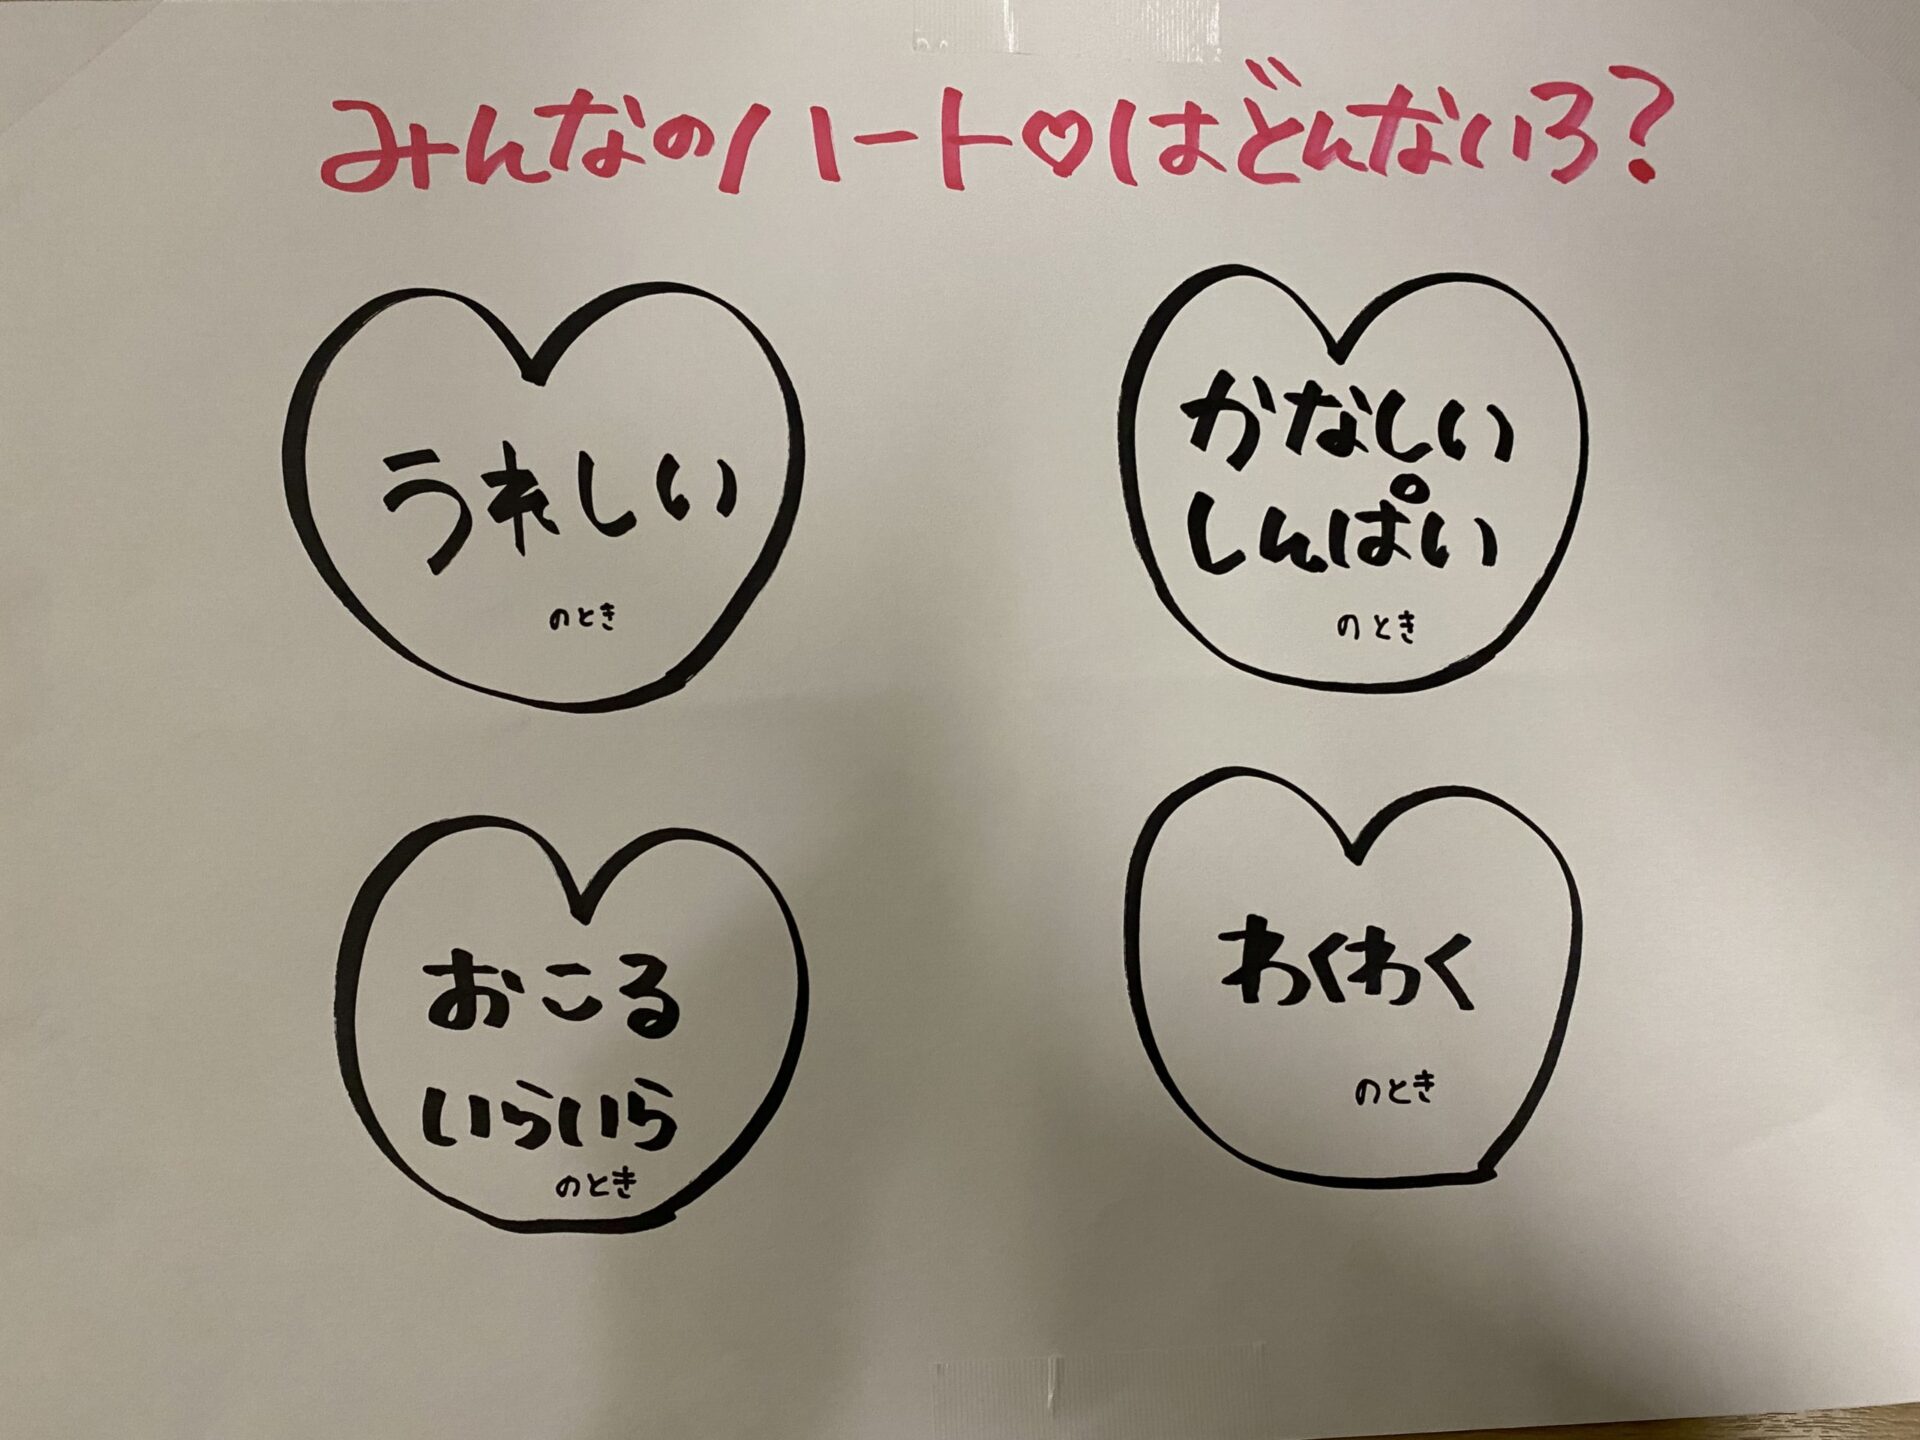 みんなのハート♡はどんないろ?
うれしい
のとき
かなしい
しんぱい
のとき
おこる
いらいら
のとき
わくわく
のとき